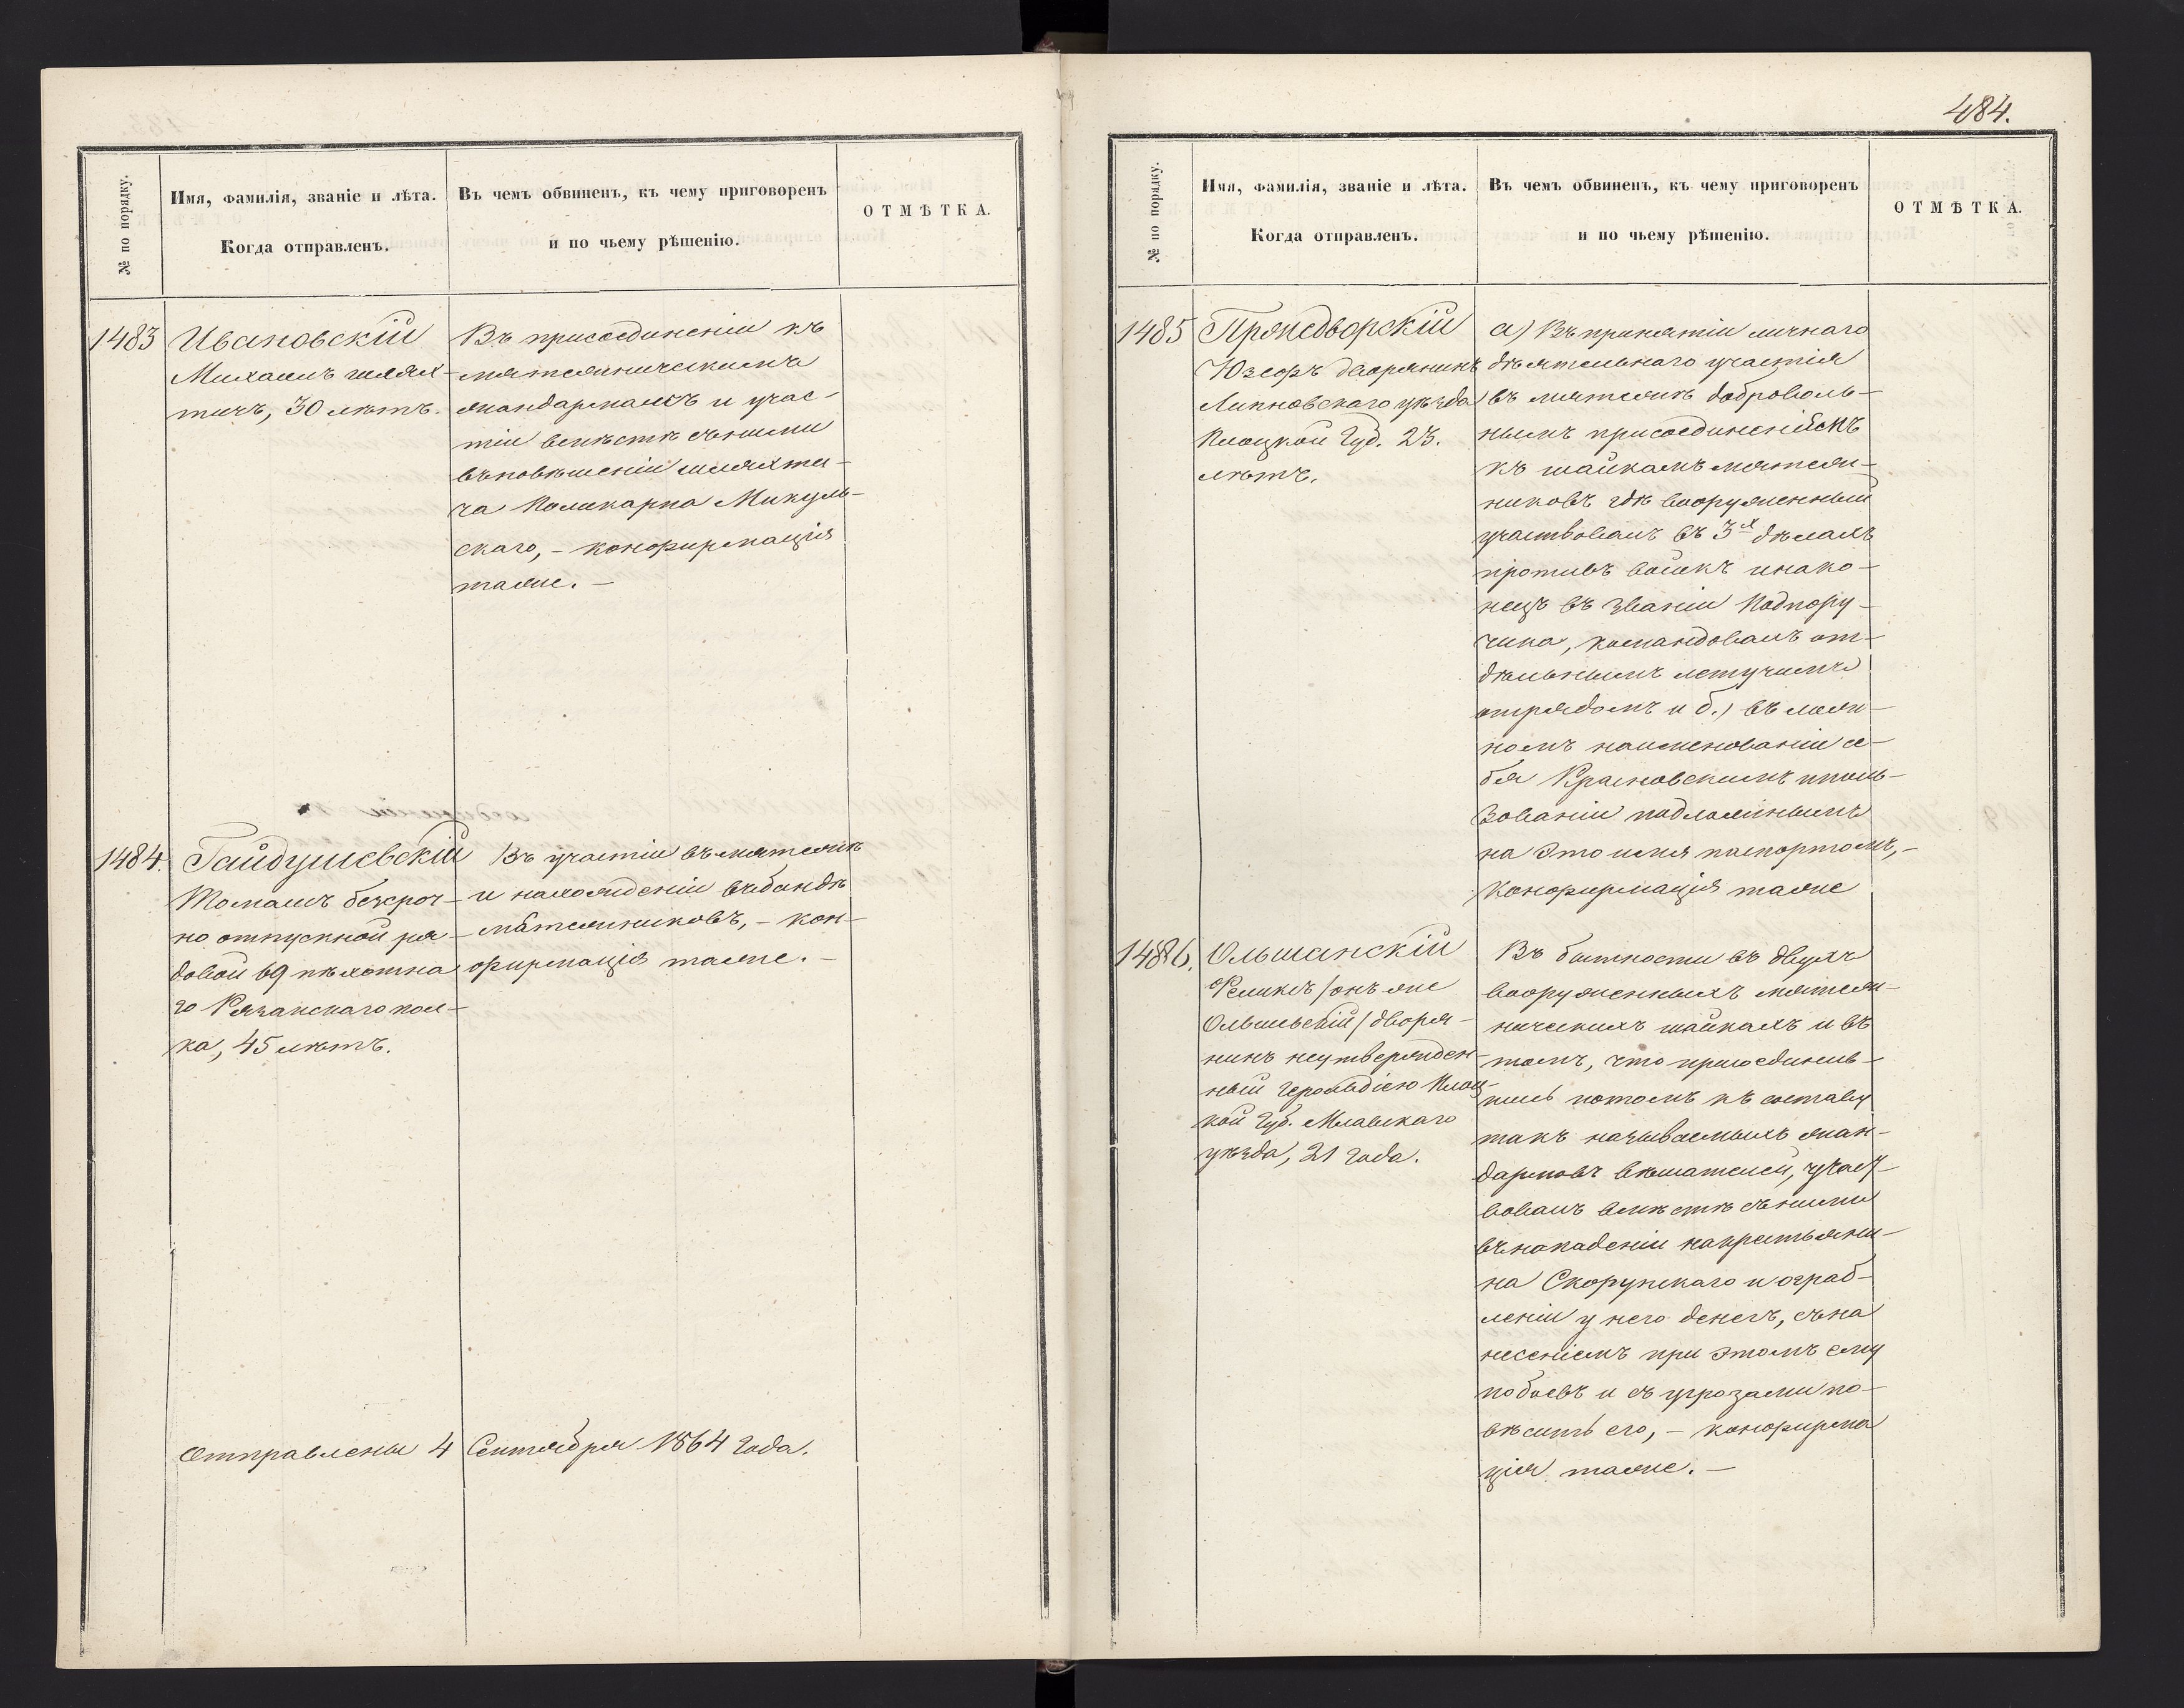 484.
№ по порядку.
Имя, фамилія, званіе и лѣта.
Когда отправленъ.
Въ чемъ обвиненъ, къ чему приговоренъ
и по чьему рѣшенію.
ОТМѢТКА.
1483
Ивановскій
Михаилъ шлях-
тичъ, 30 лѣтъ.
Въ присоединеніи къ
мятежническимъ
жандармамъ и учас-
тіи вмѣстѣ съ ними
въ повѣшеніи шляхти-
ча Поликарпа Микуль-
скаго, – конфирмація
таже. –
1484.
Гайдушевскій
Томашъ безсроч-
но отпускной ря-
довой 69 пѣхотна
го Рязанскаго пол-
ка, 45 лѣтъ.
Въ участіи въ мятежѣ
и нахожденіи въ бандѣ
мятежниковъ, – кон-
фирмація таже. –
Отправлены 4 Сентября 1864 года.
№ по порядку.
Имя, фамилія, званіе и лѣта.
Когда отправленъ.
Въ чемъ обвиненъ, къ чему приговоренъ
и по чьему рѣшенію.
ОТМѢТКА.
1485
Юзефъ дворянинъ
Липновскаго уѣзда
Плоцкой Губ. 23.
лѣтъ.
а) Въ принятіи личнаго
дѣятельнаго участія
въ мятежѣ доброволь-
нымъ присоединеніемъ
къ шайкамъ мятеж-
никовъ гдѣ вооруженный
участвовалъ въ 3х дѣлахъ
противъ войскъ и нако-
нецъ въ званіи Подпору-
чика, командовалъ от-
дѣльнымъ летучимъ
отрядомъ и б.) въ лож-
номъ наименованіи се-
бя Красновскимъ и поль-
зованіи подложнымъ
на это имя паспортомъ, –
конфирмація таже
1486.
Ольшанскій
Феликсъ /онъ же
Ольшевскій/ дворя-
нинъ неутвержден-
ный герольдіею Плоц-
кой Губ. Млавскаго
уѣзда, 21 года.
Въ бытности въ двухъ
вооруженныхъ мятеж-
ническихъ шайкахъ и въ
томъ, что присоединив-
шись потомъ къ составу
такъ называемыхъ жан-
дармовъ вѣшателей, участ-
вовалъ вмѣстѣ съ ними
въ нападеніи на крестьяни-
на Скорупскаго и ограб-
леніи у него денегъ, съ на
несеніемъ при этомъ ему
побоевъ и съ угрозами по-
вѣсить его, – конфирма
ція таже. –